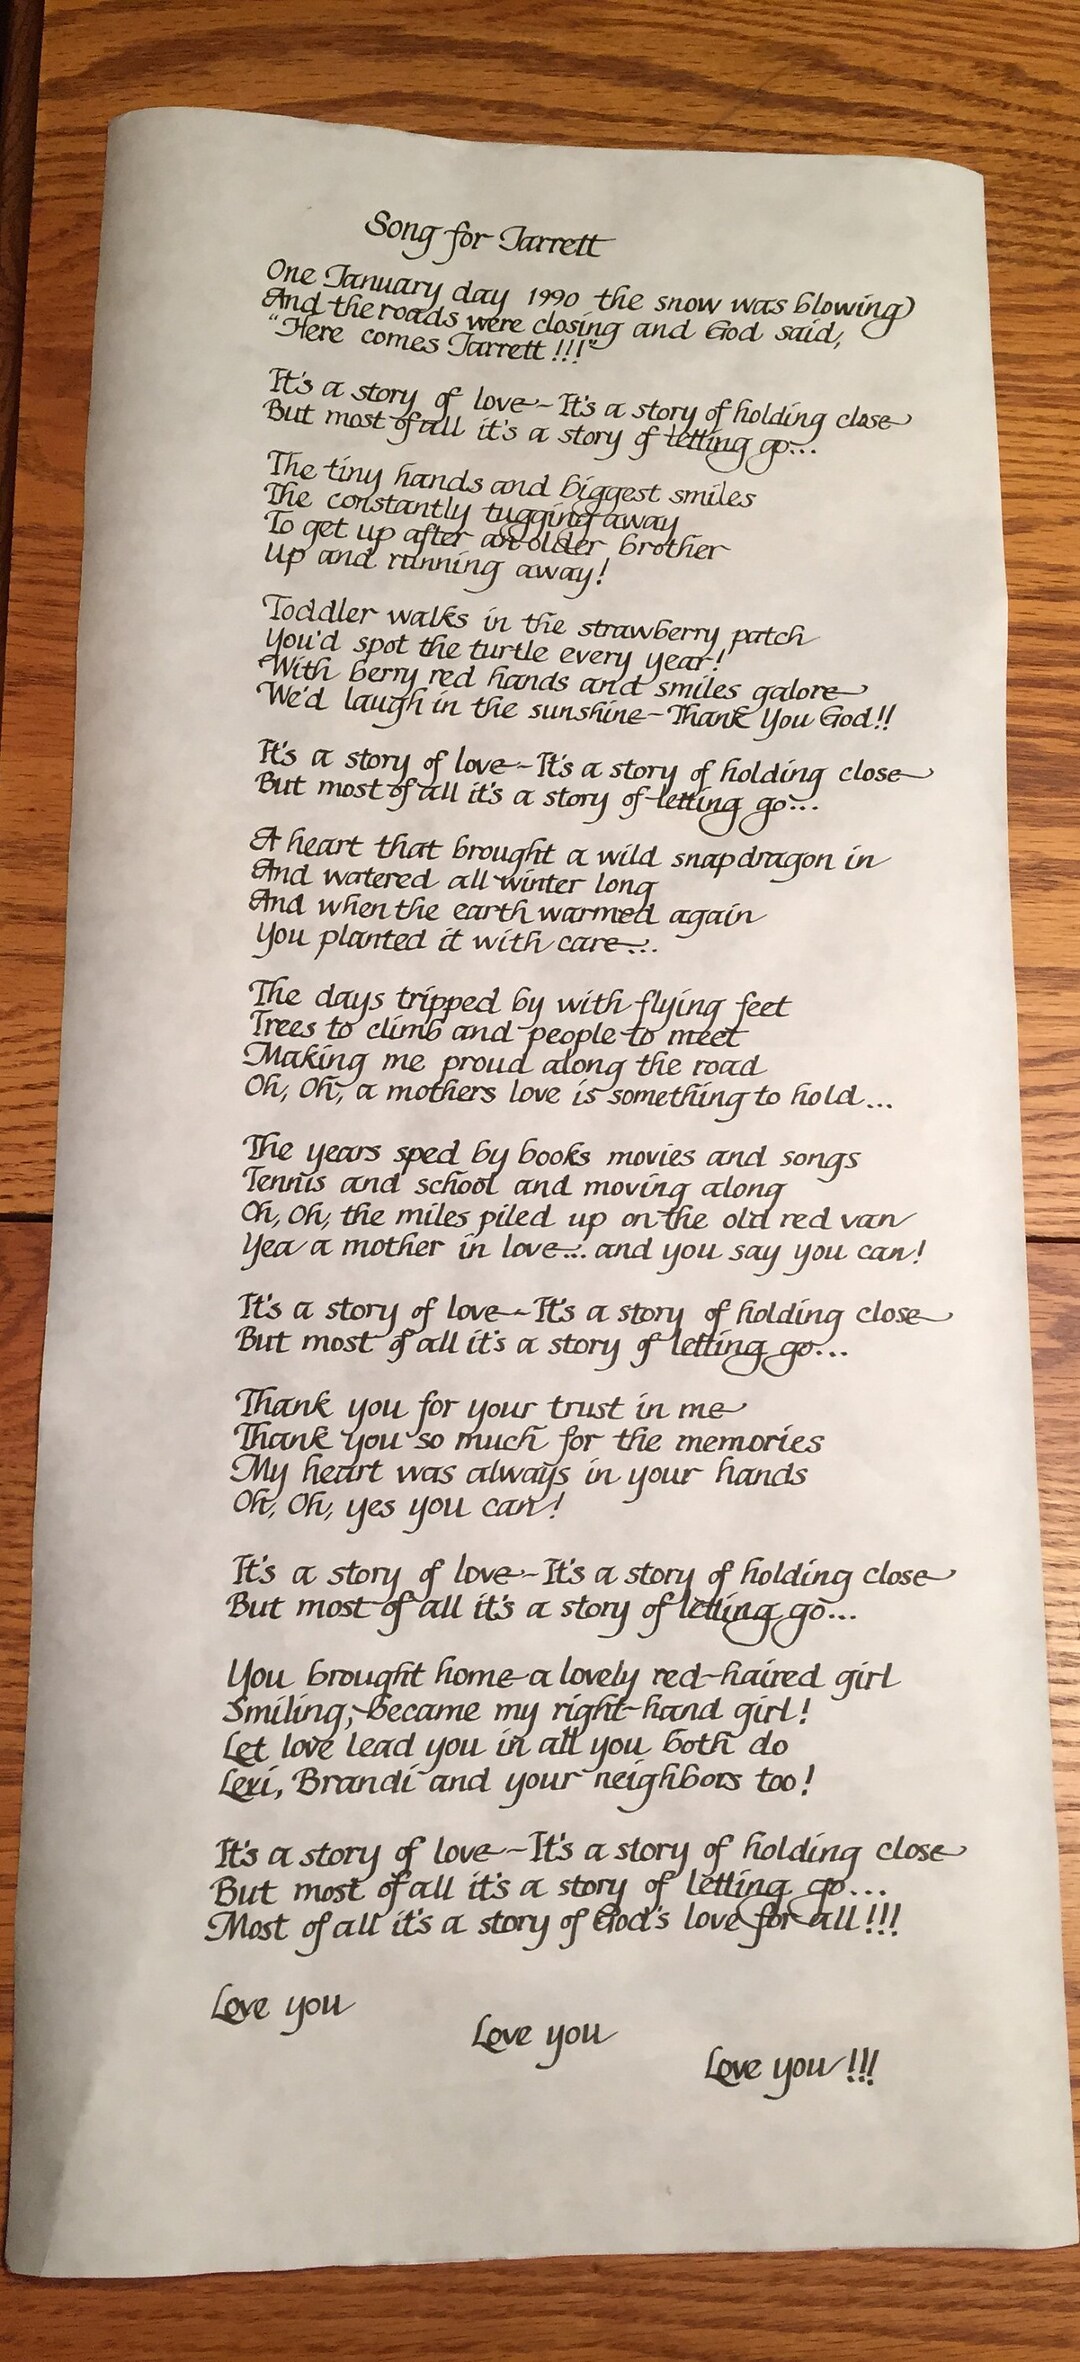 Song for Jarrett
One January day 1990 the snow was blowing
And the roads were closing and God said,
"Here comes Jarrett!!!"
It's a story of love~It's a story of holding close
But most of all it's a story of letting go...
The tiny hands and biggest smiles
The constantly tugging away
To get up after an older brother
Up and running away!
Toddler walks in the strawberry patch
You'd spot the turtle every year!
With berry red hands and smiles galore
We'd laugh in the sunshine~Thank You God!!
It's a story of love~It's a story of holding close
But most of all it's a story of letting go...
A heart that brought a wild snapdragon in
And watered all winter long
And when the earth warmed again
You planted it with care...
The days tripped by with flying feet
Trees to climb and people to meet
Making me proud along the road
Oh, Oh, a mothers love is something to hold...
The years sped by books movies and songs
Tennis and school and moving along
Oh, Oh, the miles piled up on the old red van
Yea a mother in love... and you say you can!
It's a story of love~It's a story of holding close
But most of all it's a story of letting go...
Thank you for your trust in me
Thank you so much for the memories
My heart was always in your hands
Oh, Oh, yes you can!
It's a story of love~It's a story of holding close
But most of all it's a story of letting go...
You brought home a lovely red-haired girl
Smiling, became my right-hand girl!
Let love lead you in all you both do
Lexi, Brandi and your neighbors too!
It's a story of love~It's a story of holding close
But most of all it's a story of letting go...
Most of all it's a story of God's love for all!!!
Love you
Love you
Love you!!!